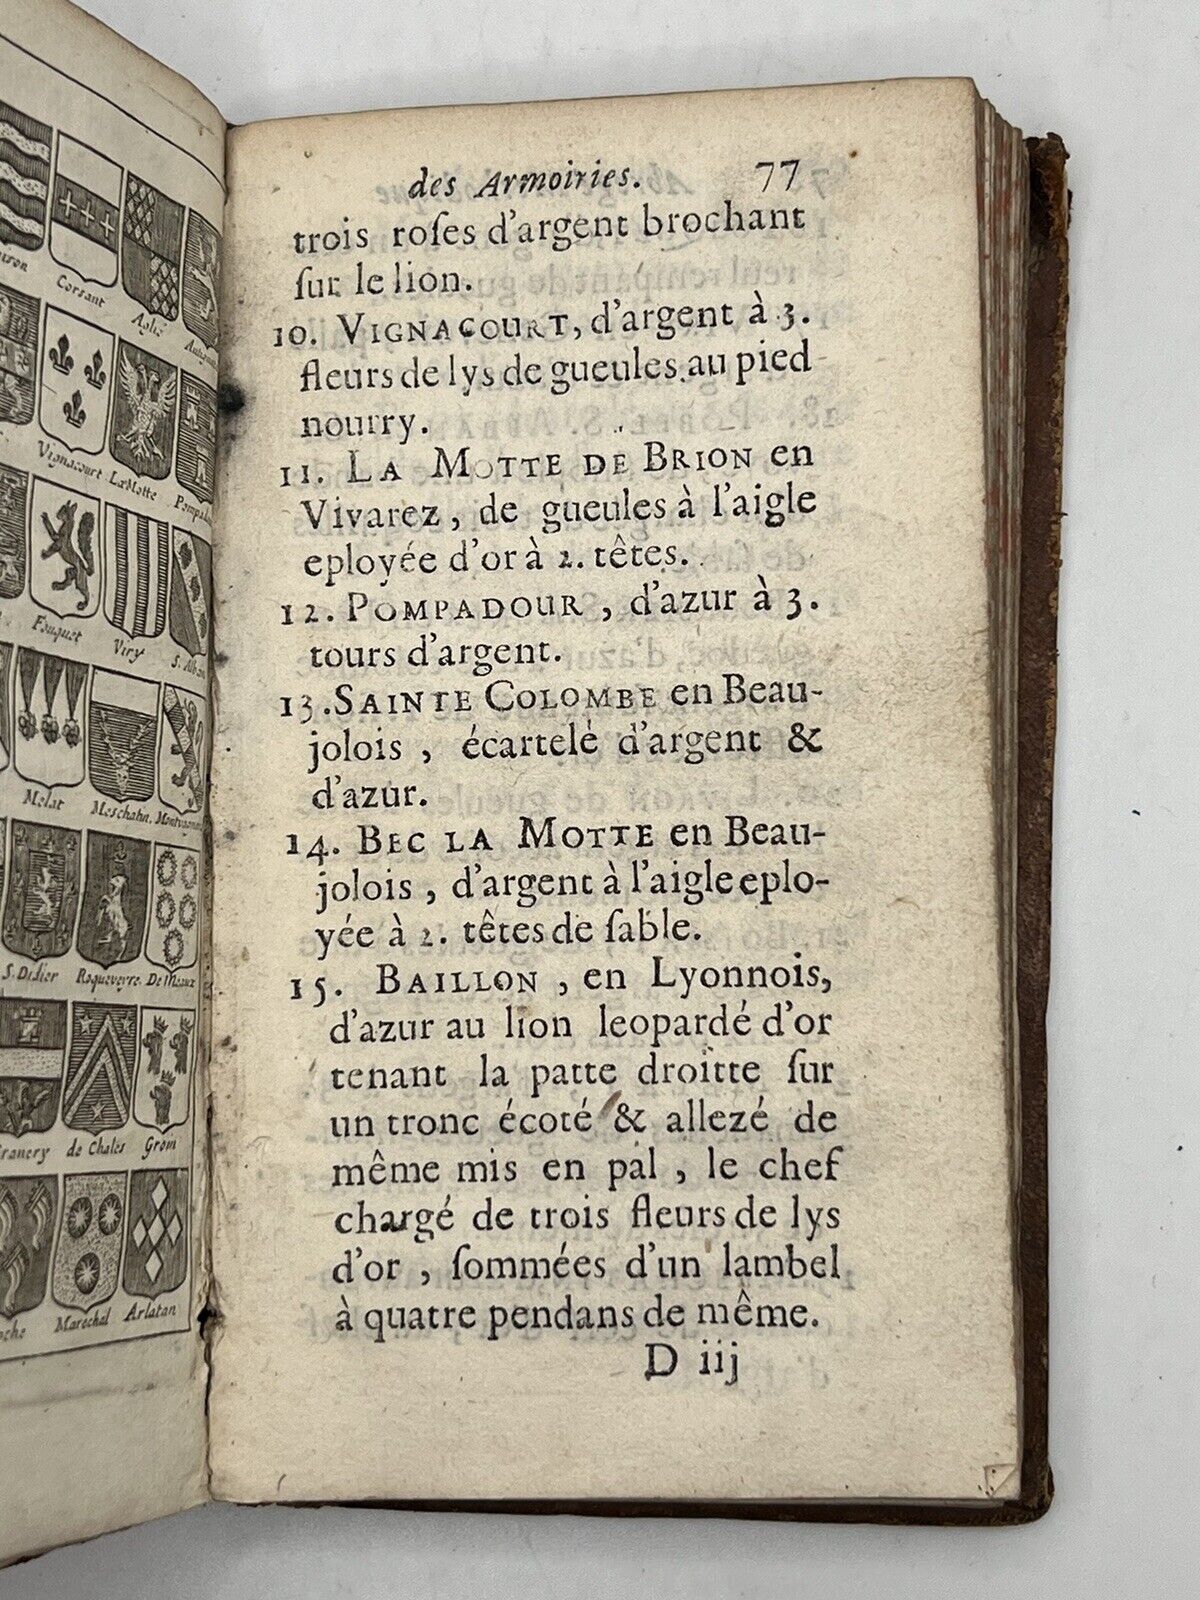 Corsant
Vignacourt LaMotte
Fouquet
Viry
Melat
Meschatin
S. Didier
Roqueveyre
De Meaux
de Chales
Groin
Marechal
Arlatan
des Armoiries. 77
trois roſes d'argent brochant
ſur le lion.
10. VIGNACOURT, d'argent à 3.
fleurs de lys de gueules au pied
nourry.
11. LA MOTTE DE BRION en
Vivarez, de gueules à l'aigle
eployée d'or à 2. têtes.
12. POMPADOUR, d'azur à 3.
tours d'argent.
13. SAINTE COLOMBE en Beau-
jolois, écartelé d'argent &
d'azur.
14. BEC LA MOTTE en Beau-
jolois, d'argent à l'aigle eplo-
yée à 2. têtes de ſable.
15. BAILLON, en Lyonnois,
d'azur au lion leopardé d'or
tenant la patte droitte ſur
un tronc écoté & allezé de
même mis en pal, le chef
chargé de trois fleurs de lys
d'or, ſommées d'un lambel
à quatre pendans de même.
D iij